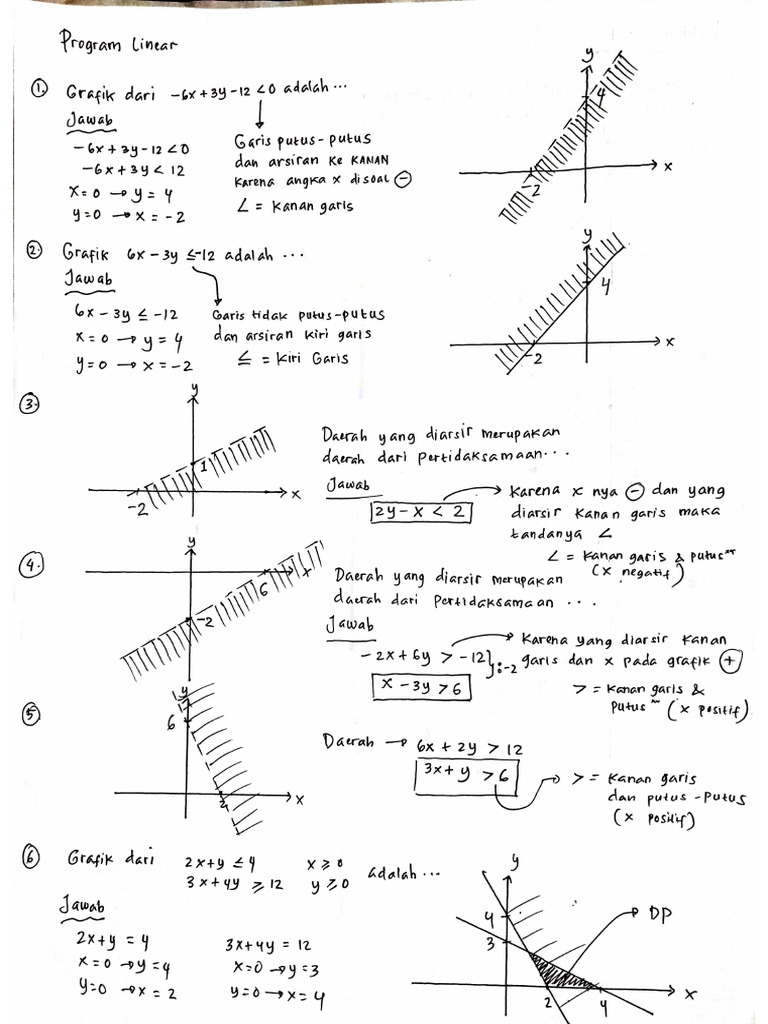 Program Linear
① Grafik dari -6x+3y-12 <0 adalah...
Jawab
-6x+3y-12 <0
-6x+3y < 12
x=0 → y = 4
y=0 → x = -2
Garis putus-putus
dan arsiran ke KANAN
karena angka x disoal ⊖
∠ = Kanan garis
y
4
x
-2
② Grafik 6x - 3y ≤ -12 adalah ...
Jawab
6x - 3y ≤ -12
x = 0 → y = 4
y = 0 → x = -2
Garis tidak putus-putus
dan arsiran kiri garis
≤ = Kiri Garis
y
4
x
-2
③
y
1
x
-2
Daerah yang diarsir merupakan
daerah dari Pertidaksamaan...
Jawab
2y - x < 2
Karena x nya ⊖ dan yang
diarsir kanan garis maka
tandanya ∠
∠ = Kanan garis & putus~
(x negatif)
④
y
x
6
-2
Daerah yang diarsir merupakan
daerah dari Pertidaksamaan ...
Jawab
-2x + 6y > -12 } : -2
x - 3y > 6
Karena yang diarsir kanan
garis dan x pada grafik ⊕
> = Kanan garis &
putus~ (x positif)
⑤
y
6
2
x
Daerah → 6x + 2y > 12
3x + y > 6
> = Kanan garis
dan putus-putus
(x positif)
⑥ Grafik dari 2x+y ≤ 4 x ≥ 0
3x + 4y ≥ 12 y ≥ 0 adalah...
Jawab
2x+y = 4
x=0 → y=4
y=0 → x = 2
3x+4y = 12
x=0 → y=3
y=0 → x = 4
y
4
3
DP
2
4
x